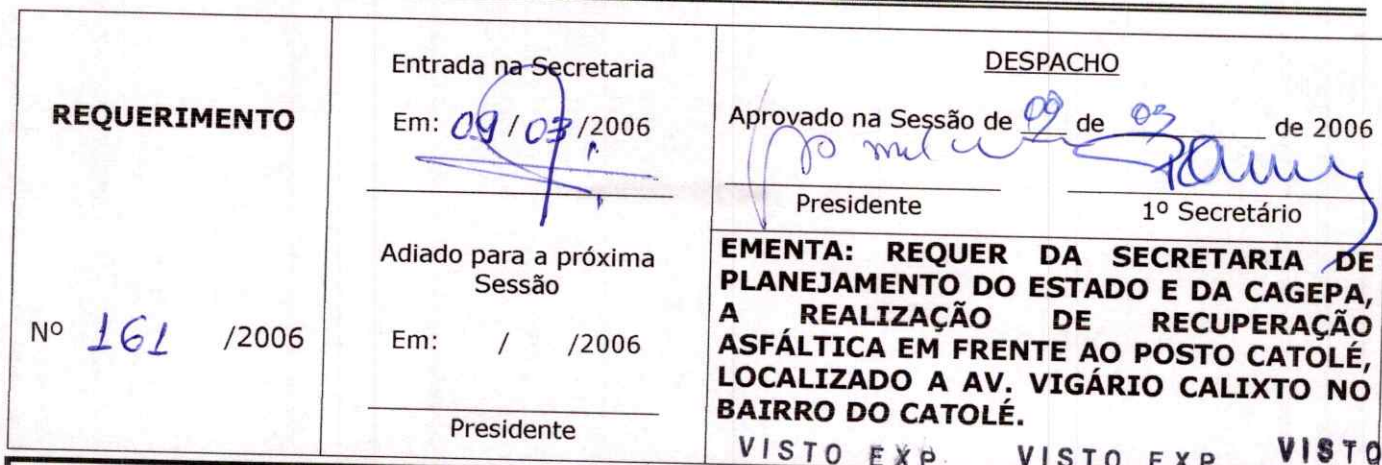 REQUERIMENTO
Nº 161 /2006
Entrada na Secretaria
Em: 09 / 03 /2006
Adiado para a próxima
Sessão
Em: / /2006
Presidente
DESPACHO
Aprovado na Sessão de 09 de 03 de 2006
Presidente 1º Secretário
EMENTA: REQUER DA SECRETARIA DE
PLANEJAMENTO DO ESTADO E DA CAGEPA,
A REALIZAÇÃO DE RECUPERAÇÃO
ASFÁLTICA EM FRENTE AO POSTO CATOLÉ,
LOCALIZADO A AV. VIGÁRIO CALIXTO NO
BAIRRO DO CATOLÉ.
VISTO EXP. VISTO EXP VISTO